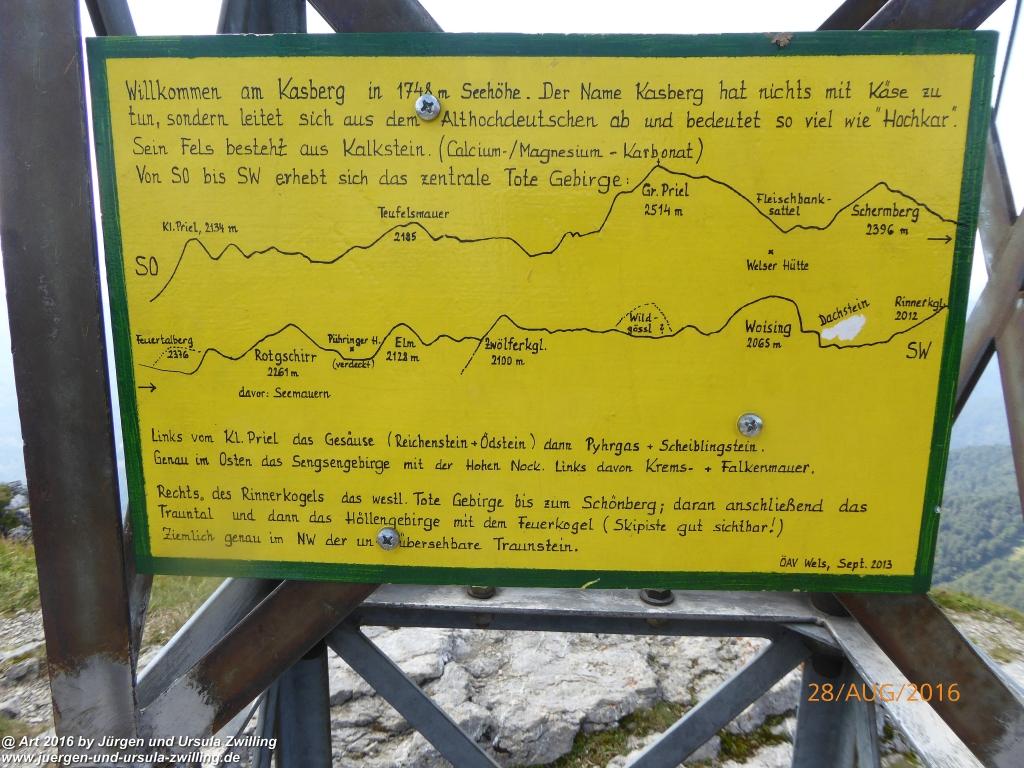 Willkommen am Kasberg in 1748 m Seehöhe. Der Name Kasberg hat nichts mit Käse zu
tun, sondern leitet sich aus dem Althochdeutschen ab und bedeutet so viel wie "Hochkar".
Sein Fels besteht aus Kalkstein. (Calcium-/Magnesium - Karbonat)
Von SO bis SW erhebt sich das zentrale Tote Gebirge:
Kl. Priel, 2134 m
Teufelsmauer
2185
Gr. Priel
2514 m
Fleischbank-
sattel
Schermberg
2396 m
SO
Welser Hütte
Feuertalberg
2376
Rotgschirr
2261 m
davor: Seemauern
Pühringer H.
(verdeckt)
Elm
2128 m
Zwölferkgl.
2100 m
Wild-
gössl
Woising
2065 m
Dachstein
Rinnerkgl.
2012
SW
Links vom Kl. Priel das Gesäuse (Reichenstein + Ödstein) dann Pyhrgas + Scheiblingstein.
Genau im Osten das Sengsengebirge mit der Hohen Nock. Links davon Krems- + Falkenmauer.
Rechts, des Rinnerkogels das westl. Tote Gebirge bis zum Schönberg; daran anschließend das
Trauntal und dann das Höllengebirge mit dem Feuerkogel (Skipiste gut sichtbar!)
Ziemlich genau im NW der unübersehbare Traunstein.
ÖAV Wels, Sept. 2013
28/AUG/2016
@ Art 2016 by Jürgen und Ursula Zwilling
www.juergen-und-ursula-zwilling.de